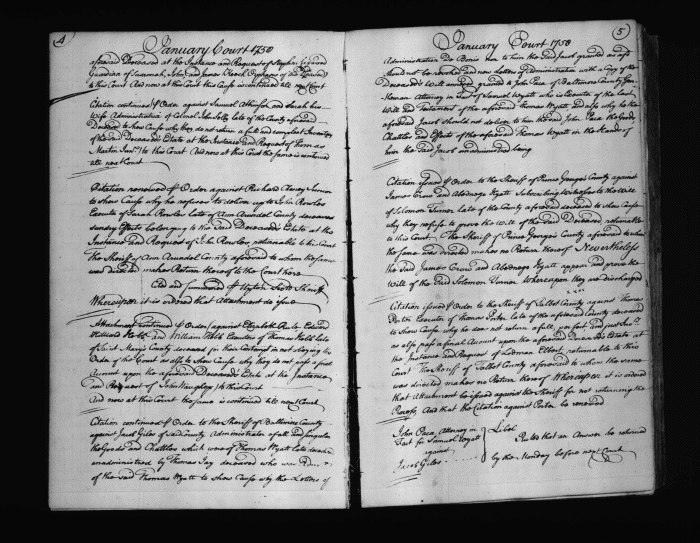 4
January Court 1750
aforesaid Deceased at the Instance and Request of Stephen
Guardian of Susannah, John, and James Keech Orphans of the Deceased
to this Court And now at this Court this Cause is continued till next Court
Citation continued of Order against Samuel Atkinson and Sarah his
Wife Administratrix of Colonel John Jolly late of the County aforesaid
Deceased to shew Cause why they do not return a full and compleat Inventory
of the said Deceased's Estate at the Instance and Request of Thomas
Martin Junr. to this Court And now at this Court the same is continued
till next Court
Citation renewed of Order against Richard Clarey Junior
to shew Cause why he refuses to deliver up to John Rowles
Executor of Sarah Rowles late of Ann Arundel County deceased
sundry Effects belonging to the said Deceased Estate at the
Instance and Request of John Rowles, returnable to this Court
the Sheriff of Ann Arundel County aforesaid to whom the same
was directed makes Return thereof to the Court here
Cited and Summoned Scott Sheriff
Whereupon it is ordered that Attachment is issued
Attachment continued of Order against Elizabeth
and William Executors of Thomas late
of Saint Mary's County deceased for their Contempt in not obeying the
Order of this Court as also to shew Cause why they do not return a first
Account upon the aforesaid Deceased Estate at the Instance
and Request of John to this Court
And now at this Court the same is continued till next Court
Citation continued of Order to the Sheriff of Baltimore County
against Jacob Giles of said County Administrator of all and singular
the Goods and Chattles which were of Thomas Wyatt late deceased
unadministred by Thomas Jay deceased who was
of the said Thomas Wyatt to shew Cause why the Letters of
5
January Court 1750
Administration De Bonis Non to him the said Jacob granted as afd
should not be revoked and new Letters of Administration with a Copy of the
Deceased's Will annexed granted to John Paca of Baltimore County Gen-
tleman Attorney in Fact of Samuel Wyatt who is Executor of the Last
Will and Testament of the aforesaid Thomas Wyatt, and also why he the
aforesaid Jacob should not deliver to him the said John Paca the Goods
Chattles and Effects of the aforesaid Thomas Wyatt in the Hands of
him the said Jacob unadministred being
Citation issued of Order to the Sheriff of Prince George's County against
James Crow and Wyatt Subscribing Witnesses to the Will
of Solomon Turner late of the County aforesaid deceased to shew Cause
why they refuse to prove the Will of the said Deceased returnable
to this Court. The Sheriff of Prince George's County aforesaid to whom
the same was directed makes no Return thereof Nevertheless
the said James Crow and Wyatt appear and prove the
Will of the said Solomon Turner Whereupon they are discharged
Citation issued of Order to the Sheriff of Talbot County against Thomas
Porter Executor of Thomas Porter late of the aforesaid County deceased
to shew Cause why he does not return a full, perfect, and just Invy.
as also pass a final Account upon the aforesaid Deceased's Estate at
the Instance and Request of Lodman Elbert returnable to this
Court The Sheriff of Talbot County aforesaid to whom the same
was directed makes no Return thereof Whereupon it is ordered
that Attachment be issued against the Sheriff for not returning the
Process, And that the Citation against Porter be renewed
John Paca Attorney in
Fact for Samuel Wyatt
against
Jacob Giles
Libel
Ruled that an Answer be returned
by the Monday before next Court